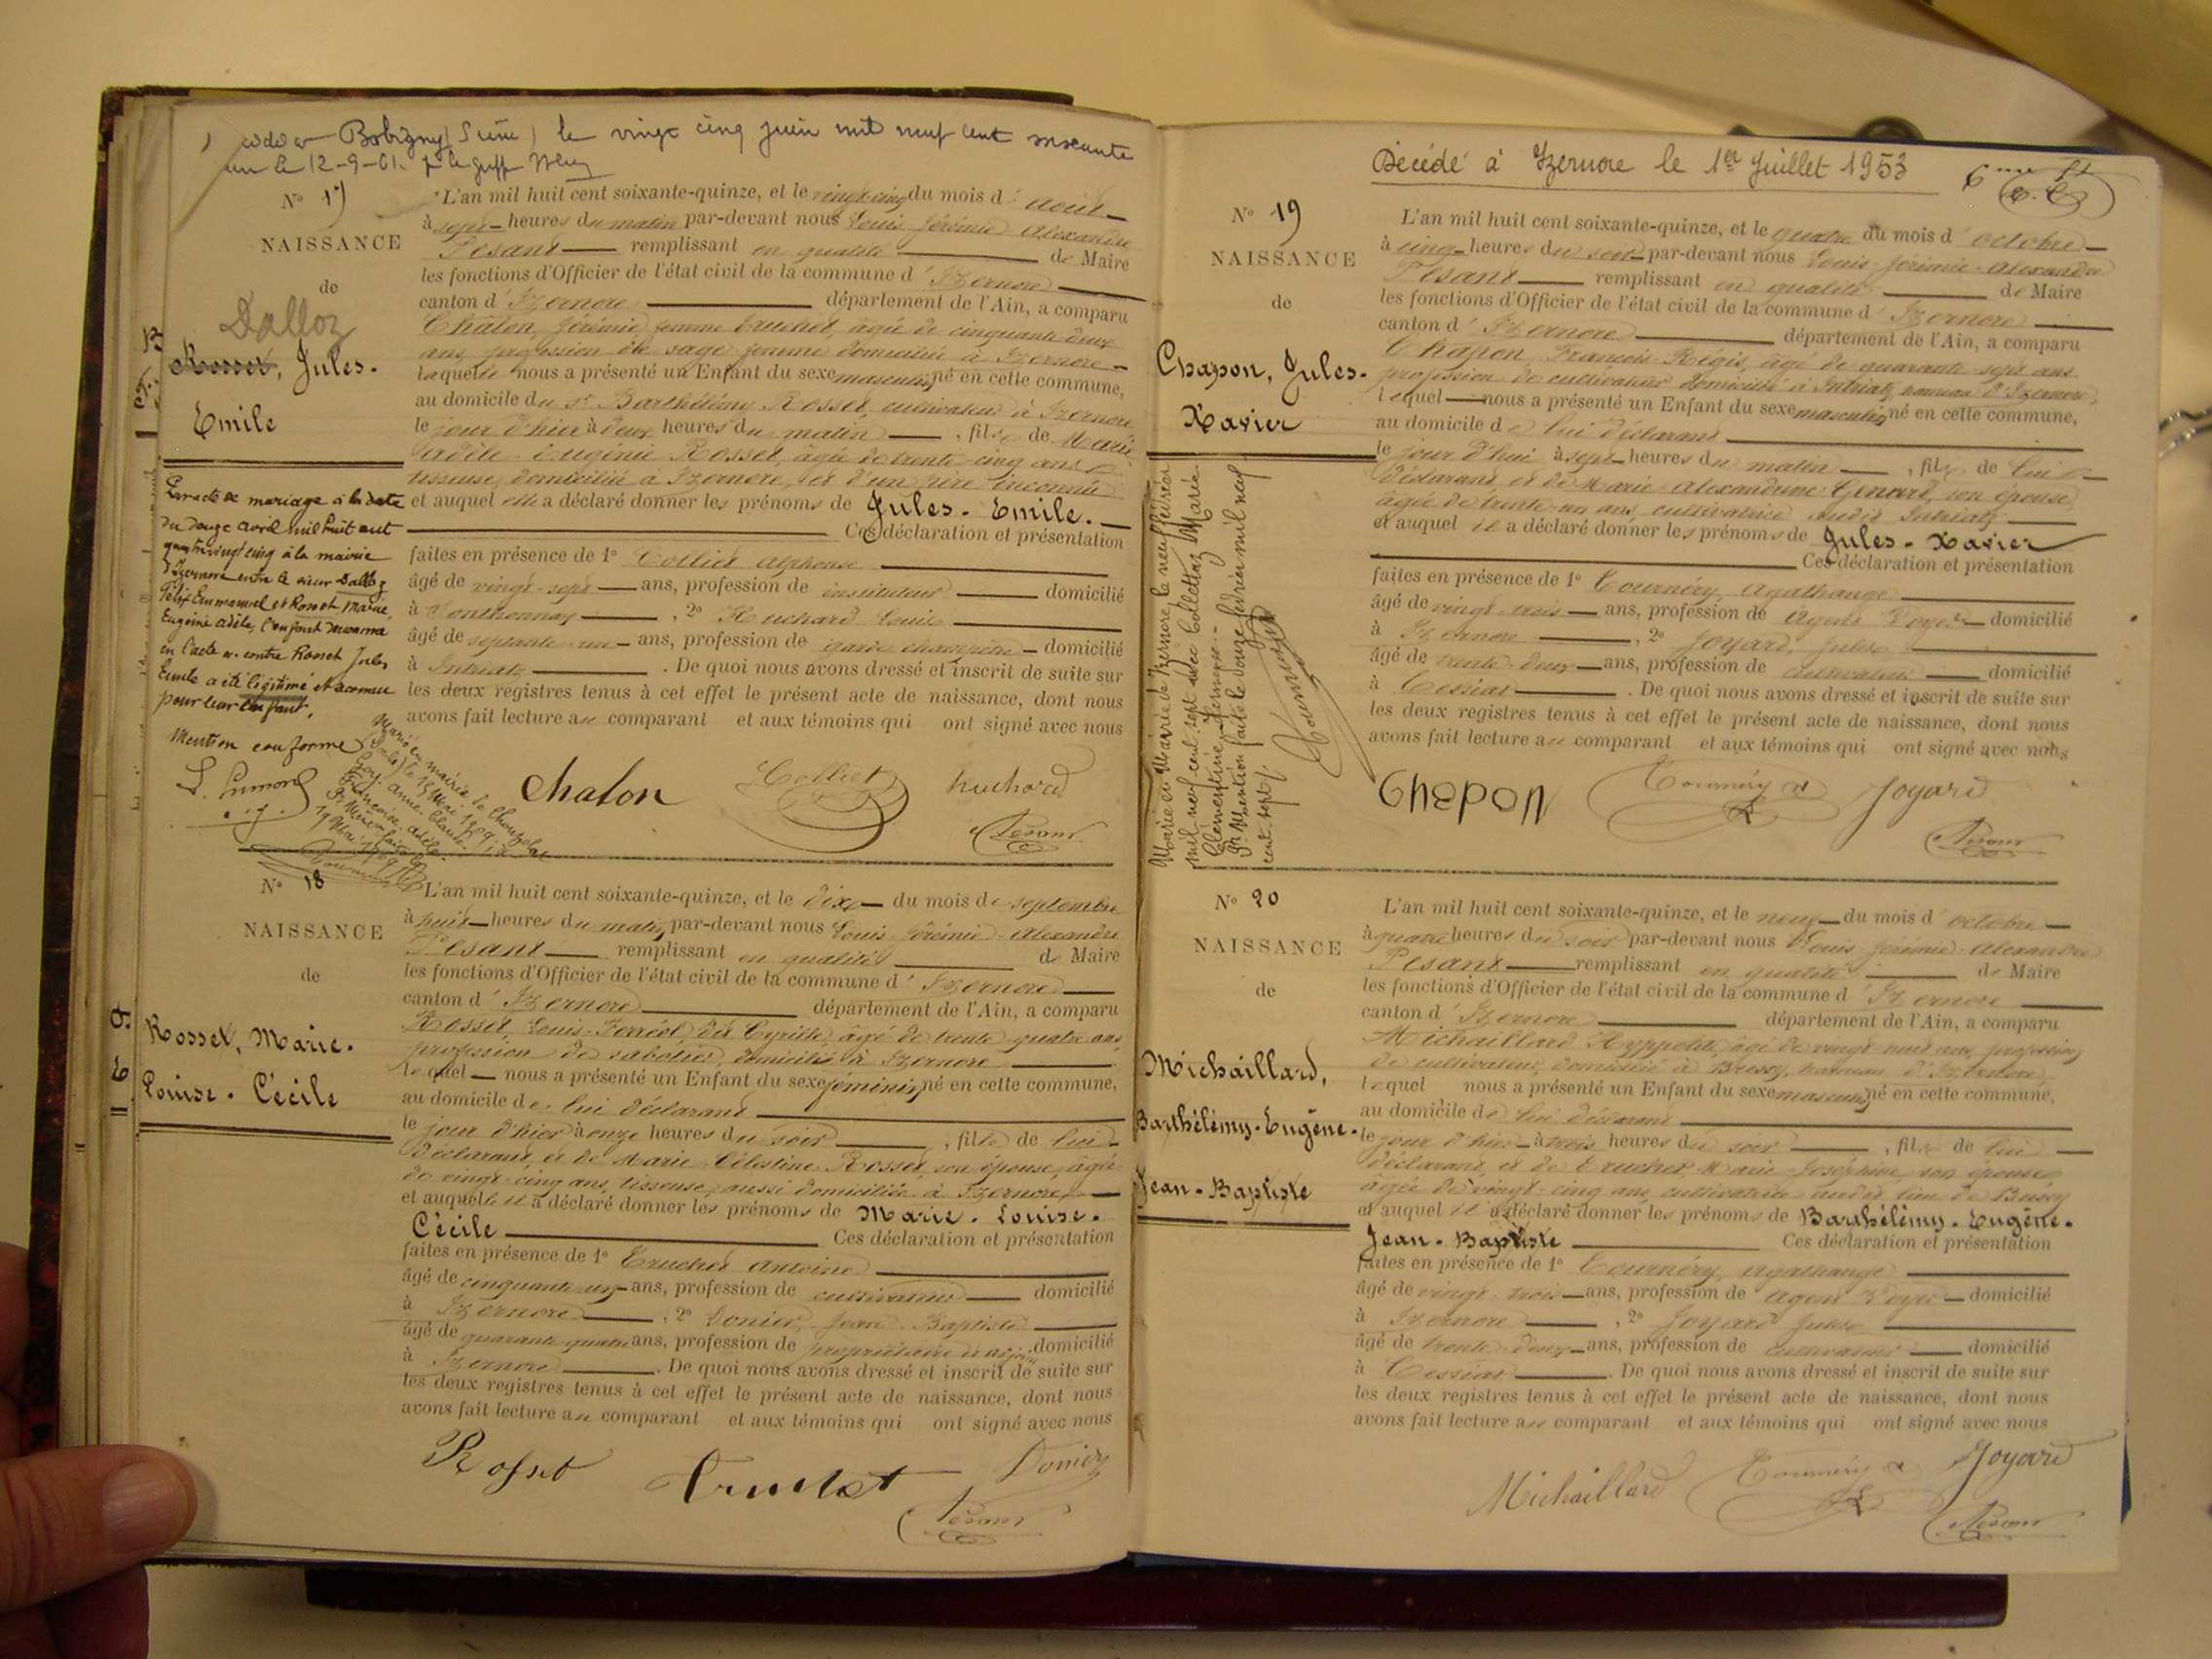 Bobigny (Seine) le vingt cinq juin mil neuf cent soixante
un le 12-9-61.
N° 17
NAISSANCE
de
Dalloz
Rosset, Jules.
Emile
L'an mil huit cent soixante-quinze, et le vingt cinq du mois d'août
à sept heures du matin par-devant nous Louis Jérémie Alexandre
Pesant remplissant en qualité de Maire
les fonctions d'Officier de l'état civil de la commune d'Izernore
canton d'Izernore département de l'Ain, a comparu
Chalon, Jérémie, femme Truchet, âgée de cinquante deux
ans, profession de sage femme domiciliée à Izernore
laquelle nous a présenté un Enfant du sexe masculin, né en cette commune,
au domicile du Sr Barthélémy Rosset, cultivateur à Izernore
le jour d'hier à deux heures du matin, fils de Marie
adèle Eugénie Rosset, âgée de trente cinq ans
tisseuse, domiciliée à Izernore, et d'un père inconnu
et auquel elle a déclaré donner les prénoms de Jules. Emile.
Ces déclaration et présentation
faites en présence de 1° Colliet Alphonse
âgé de vingt-sept ans, profession de instituteur domicilié
à Ponthonnay, 2° Huchard Louis
âgé de septante-un ans, profession de garde champêtre domicilié
à Intriatz. De quoi nous avons dressé et inscrit de suite sur
les deux registres tenus à cet effet le présent acte de naissance, dont nous
avons fait lecture au comparant et aux témoins qui ont signé avec nous
Par acte de mariage à la date
du douze avril mil huit cent
quatre vingt cinq à la mairie
d'Izernore entre le sieur Dalloz
Félix Emmanuel et Rosset Marie
Eugénie adèle, l'enfant dénommé
en l'acte ci-contre Rosset Jules
Emile a été légitimé et reconnu
pour leur enfant.
Mention conforme
Chalon
Colliet
huchard
Pesant
N° 18
NAISSANCE
de
Rosset, Marie.
Louise. Cécile
L'an mil huit cent soixante-quinze, et le dix du mois de septembre
à huit heures du matin, par-devant nous Louis Jérémie Alexandre
Pesant remplissant en qualité de Maire
les fonctions d'Officier de l'état civil de la commune d'Izernore
canton d'Izernore département de l'Ain, a comparu
Rosset, Louis-Ferréol, dit Cyrille, âgé de trente quatre ans,
profession de sabotier, domicilié à Izernore
lequel nous a présenté un Enfant du sexe féminin, né en cette commune,
au domicile de lui déclarant
le jour d'hier à onze heures du soir, fille de lui
déclarant, et de Marie Célestine Rosset, son épouse, âgée
de vingt-cinq ans, tisseuse, aussi domiciliée à Izernore,
et auquelle il a déclaré donner les prénoms de Marie. Louise.
Cécile Ces déclaration et présentation
faites en présence de 1° Truchet Antoine
âgé de cinquante un ans, profession de cultivateur domicilié
à Izernore, 2° Jean-Baptiste
âgé de quarante quatre ans, profession de propriétaire et adjoint domicilié
à Izernore. De quoi nous avons dressé et inscrit de suite sur
les deux registres tenus à cet effet le présent acte de naissance, dont nous
avons fait lecture au comparant et aux témoins qui ont signé avec nous
Rosset
Truchet
Pesant
Décédé à Izernore le 1er Juillet 1953
N° 19
NAISSANCE
de
Chapon, Jules.
Xavier
L'an mil huit cent soixante-quinze, et le quatre du mois d'octobre
à cinq heures du soir par-devant nous Louis-Jérémie-Alexandre
Pesant remplissant en qualité de Maire
les fonctions d'Officier de l'état civil de la commune d'Izernore
canton d'Izernore département de l'Ain, a comparu
Chapon, François Régis, âgé de quarante sept ans
profession de cultivateur domicilié à Intriatz, hameau d'Izernore,
lequel nous a présenté un Enfant du sexe masculin, né en cette commune,
au domicile de lui déclarant
le jour d'hui à sept heures du matin, fils de lui
déclarant, et de Marie Alexandrine Genard, son épouse,
âgée de trente un ans, cultivatrice audit Intriatz
et auquel il a déclaré donner les prénoms de Jules-Xavier
Ces déclaration et présentation
faites en présence de 1° Tournéry, Agathange
âgé de vingt trois ans, profession de agent voyer domicilié
à Izernore, 2° Joyard, Jules
âgé de trente-deux ans, profession de cultivateur domicilié
à Cessiat. De quoi nous avons dressé et inscrit de suite sur
les deux registres tenus à cet effet le présent acte de naissance, dont nous
avons fait lecture au comparant et aux témoins qui ont signé avec nous
Marié en Mairie de Izernore le neuf février
mil neuf cent sept avec Collettaz Marie
Clémentine
Pr Mention faite le douze février mil neuf
cent sept.
Chapon
Tournéry A
Joyard
Pesant
N° 20
NAISSANCE
de
Michaillard,
Barthélémy-Eugène.
Jean-Baptiste
L'an mil huit cent soixante-quinze, et le neuf du mois d'octobre
à quatre heures du soir par-devant nous Louis Jérémie Alexandre
Pesant remplissant en qualité de Maire
les fonctions d'Officier de l'état civil de la commune d'Izernore
canton d'Izernore département de l'Ain, a comparu
Michaillard Hyppolite, âgé de vingt-huit ans, profession
de cultivateur, domicilié à Bussy, hameau d'Izernore,
lequel nous a présenté un Enfant du sexe masculin, né en cette commune,
au domicile de lui déclarant
le jour d'hier à trois heures du soir, fils de lui
déclarant, et de Truchet, Marie-Joséphine, son épouse
âgée de vingt-cinq ans, cultivatrice audit lieu de Bussy
et auquel il a déclaré donner les prénoms de Barthélémy. Eugène.
Jean-Baptiste Ces déclaration et présentation
faites en présence de 1° Tournéry, Agathange
âgé de vingt trois ans, profession de agent voyer domicilié
à Izernore, 2° Joyard Jules
âgé de trente-deux ans, profession de cultivateur domicilié
à Cessiat. De quoi nous avons dressé et inscrit de suite sur
les deux registres tenus à cet effet le présent acte de naissance, dont nous
avons fait lecture au comparant et aux témoins qui ont signé avec nous
Michaillard
Tournéry A
Joyard
Pesant